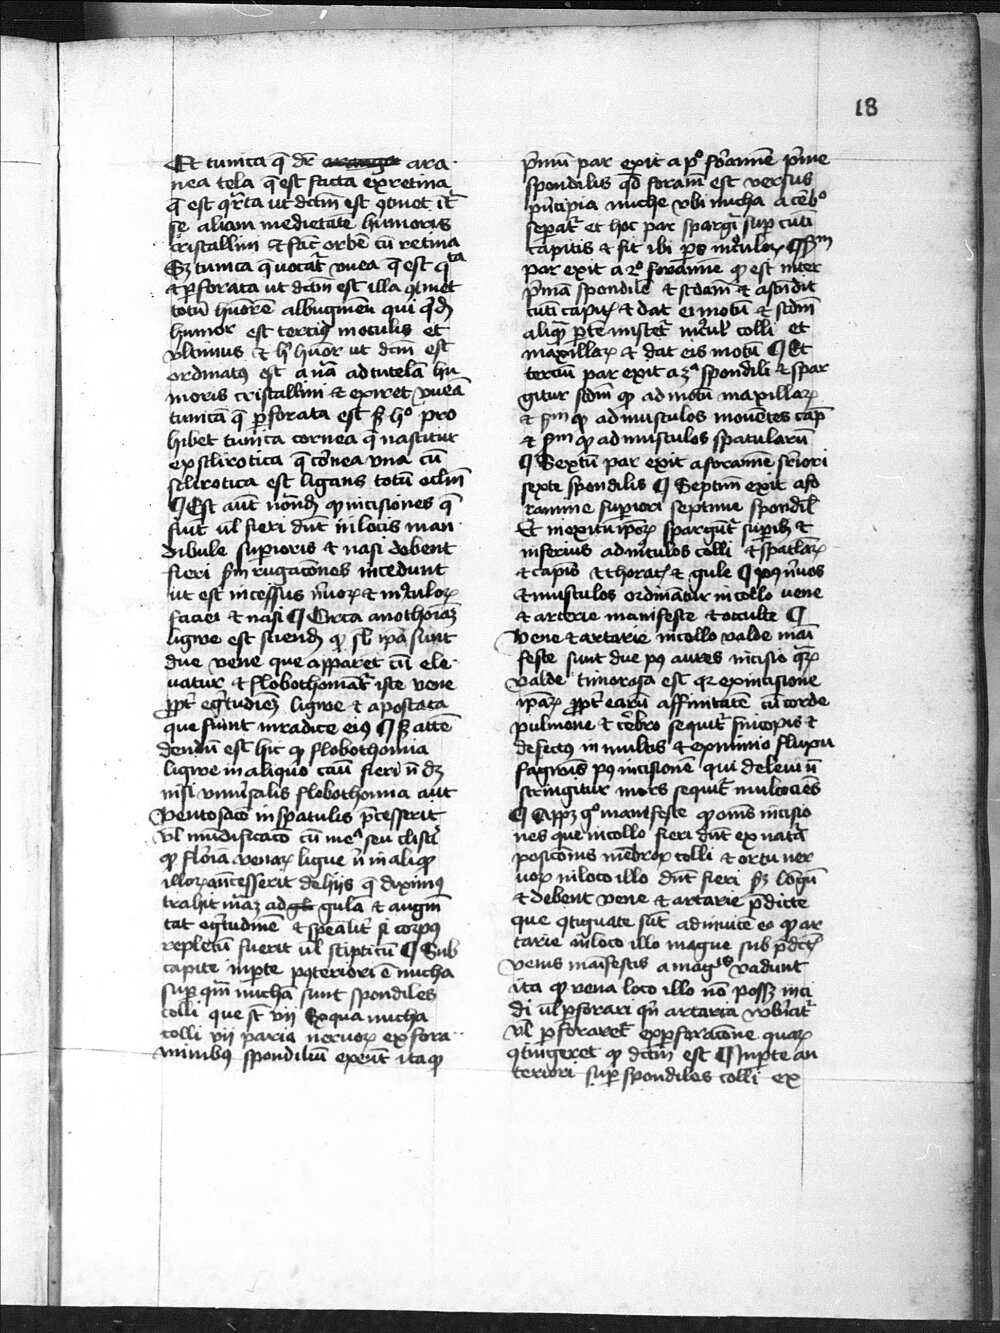 18
Et tunica q̄ dr̄ ara
nea tela q̄ est facta ex retina
q̄ est qͬta ut dcm̄ est
se aliam medietatem humoris
cristallini & fac̄ orbē cū retina
Sꝫ tunica q̄ uocat᷑ vuea q̄ est qͬta
& ꝑforata ut dcm̄ est illa ꝯtinet
totū huōrē albuginēū qui qͥdē
humor est tercius in oculis et
vltimus & hͥ huōr ut dcm̄ est
ordinatꝯ est a nā ad tutelā hu
moris cristallini & exiret vueā
tunicā q̄ ꝑforata est sꝫ hͦ pro
hibet tunica cornea q̄ nascitur
ex sclirotica q̄ cornea vna cū
sclirotica est ligans totū oclm̄
¶ Est aūt ꝙ incisiones q̄
fiūt ul̄ fieri dn̄t in locis man
dibule supioris & nasi debent
fieri sm̄ rugacōnes incedunt
ut est incessus nͥuoꝝ & mͥculoꝝ
faciei & nasi ¶ Circa anothomiā
ligwe est sciendū ꝙ sb̄ ipā sunt
due vene que apparēt cū ele
uatur & flobothomāt᷑ iste vene
ꝓpt᷑ egͥtudiēꝫ ligwe & apostāta
que fiūnt in radice eiꝯ ¶ Sꝫ atten
dendū est hic ꝙ flobothomia
ligwe in aliquo casu fieri n̄ dꝫ
nisi vniuͬsalis flebothomia aut
ventosacō in spatulis p̄cesserit
vl̄ mūdificatō cū meͣ seu clistͥ
ꝙ venaꝝ ligue n̄ in aliqͦ
illoꝝ ancesserit de hiis q̄ diximꝯ
trahit mͣaꝫ ad gulā & augm̄
tat egͥtudinē & speālit᷑ si corpꝯ
repletū fuerit ul̄ stipticū ¶ Sub
capite in ꝑte pꝯteriori ē nucha
suꝑ qm̄ nuchā sunt spondiles
colli que sūt vii Ex qua nucha
colli vii paria neruoꝝ ex fora
minibꝯ spondiliū exeūt ita ꝙ
pͥmū par exit a pͦ forāmīe pͥme
spondilis qd̄ foramē est versus
pͥncipia nuche vbi nucha a cēbͦ
sepat᷑ et hoc par spargit᷑ suꝑ cutī
capitis & fit ibi pͬs mͥculoꝝ ¶ Sm̄
par exit a 2ͦ foramīe ꝙ est inter
pͥmā spondilē & scdam̄ & ascndit
cutī capitꝭ & dat ei motū & scdm̄
aliqͣ ꝑte miscet᷑ mͥcul̄ colli et
maxillaꝝ & dat eis motū ¶ Et
terciū par exit a 3ͣ spondili & spar
gitur scdm̄ ꝙ ad motū maxillaꝝ
& sm̄ ꝙ ad musculos mouētes cap̄
& sm̄ ꝙ ad musculos spatularū
¶ Sextū par exit a foramīe
sexte spondilis ¶ Septm̄ exit a fo
ramine supiori septime spondil̄
Et in exitu ipoꝝ spargūt᷑ supiꝫ &
inferius ad mͥculos colli & spatlaꝝ
& capīs & thoratꝭ & gule ¶ pꝯ nͥuos
& musculos ordinātur in collo uene
& arterie manifeste & occulte ¶
Vene & artarie in collo valde mai
feste sunt due pꝯ aures incisio qͬꝝ
valde timorosa est qꝛ ex incisione
ipaꝝ ꝓpt᷑ earū affinitatē cū corde
pulmone & cēbro sequit᷑ sincopis &
defectꝯ in multis & ex nimio fluxu
sagwīs pꝯ incisionē qui de leui n̄
stringitur mors sequit᷑ multociēs
¶ Appꝫ gͦ manifeste ꝙ om̄s incisio
nes que in collo fieri dn̄t ex natͣ
posicōnis mēbroꝝ colli & ortu ner
uoꝝ in loco illo dn̄t fieri sꝫ lōgū
& debent vene & artarie p̄dicte
que ꝯtigwate sūt ad inuicē eo ꝙ ar
tarie in loco illo magne sub p̄dcīs
venis maifestis a magis vadunt
ita ꝙ vena loco illo nō possꝫ inci
di ul̄ ꝑforari qn̄ artaria
vl̄ ꝑforaret᷑ ex ꝑforacōne quaꝝ
ꝯtingeret ꝙ dcm̄ est ¶ In ꝑte an
teriori suꝑ spondiles colli ex